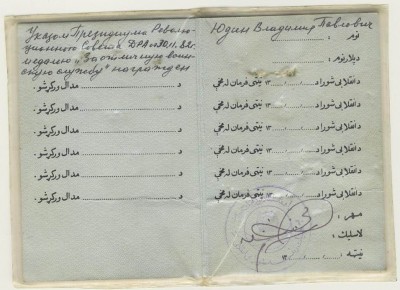 Указом Президиума Револю-
ционного Совета ДРА от 30.11.82г.
медалью "За отличную воин-
скую службу" награжден
د ............ مدال ورکړشو .
د ............ مدال ورکړشو .
د ............ مدال ورکړشو .
د ............ مدال ورکړشو .
د ............ مدال ورکړشو .
د ............ مدال ورکړشو .
Юдин Владимир Павлович
نوم :
د پلار نوم :
د انقلابی شوراد ..../..../.... ۱۳ نیټې فرمان له مخې
د انقلابی شوراد ..../..../.... ۱۳ نیټې فرمان له مخې
د انقلابی شوراد ..../..../.... ۱۳ نیټې فرمان له مخې
د انقلابی شوراد ..../..../.... ۱۳ نیټې فرمان له مخې
د انقلابی شوراد ..../..../.... ۱۳ نیټې فرمان له مخې
د انقلابی شوراد ..../..../.... ۱۳ نیټې فرمان له مخې
مهر :
لاسلیک :
نیټه ..../..../.... ۱۳